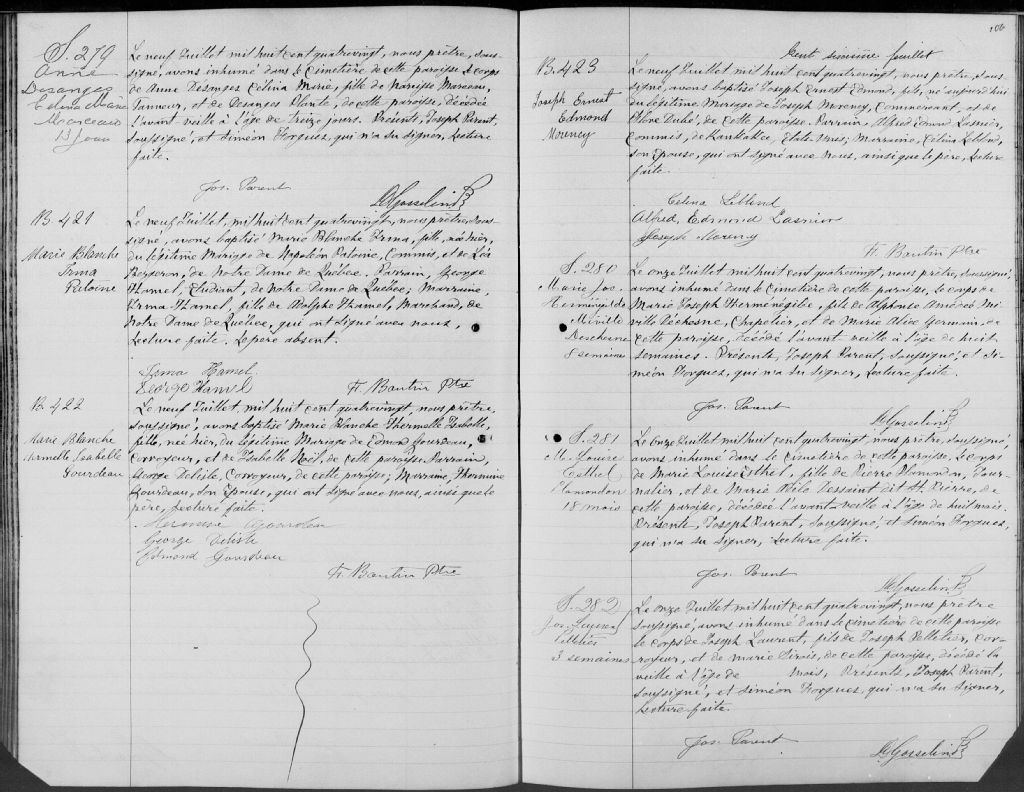 S. 279
Anne
Desanges
Celina Marie
Marceau
13 jours
Le neuf Juillet mil huit cent quatrevingt, nous prêtre, sous-
signé, avons inhumé dans le cimetière de cette paroisse le corps
de Anne Desanges Celina Marie, fille de Narcisse Marceau,
Tanneur, et de Desanges Plante, de cette paroisse, décédée
l'avant veille à l'âge de treize jours. Présents, Joseph Parent,
soussigné, et Siméon Forgues, qui n'a su signer, Lecture
faite.
Jos. Parent
Gosselin
B 421
Marie Blanche
Irma
Patoine
Le neuf Juillet, mil huit cent quatrevingt, nous prêtre, sous-
signé, avons baptisé Marie Blanche Irma, fille, née hier,
du légitime Mariage de Napoléon Patoine, Commis, et de Léa
Bergeron, de Notre Dame de Québec. Parrain, George
Hamel, Etudiant, de Notre Dame de Québec; Marraine,
Irma Hamel, fille de Adolphe Hamel, Marchand, de
Notre Dame de Québec, qui ont signé avec nous,
Lecture faite. Le père absent.
Irma Hamel
George Hamel
F. Bautin Ptre
B 422
Marie Blanche
Armelle Isabelle
Gourdeau
Le neuf Juillet, mil huit cent quatrevingt, nous prêtre,
soussigné, avons baptisé Marie Blanche Hermelle Isabelle,
fille, née hier, du légitime Mariage de Edmond Gourdeau,
Corroyeur, et de Isabelle Noël, de cette paroisse. Parrain,
George Delisle, Corroyeur, de cette paroisse; Marraine, Hermine
Gourdeau, son Epouse, qui ont signé avec nous, ainsi que le
père, Lecture faite.
Hermine Gourdeau
George Delisle
Edmond Gourdeau
F. Bautin Ptre
106
Cent sixième feuillet
B. 423
Joseph Ernest
Edmond
Morency
Le neuf Juillet mil huit cent quatrevingt, nous prêtre, sous-
signé, avons baptisé Joseph Ernest Edmond, fils, né aujourd'hui
du légitime Mariage de Joseph Morency, Commerçant, et de
Dubé, de cette paroisse. Parrain, Alfred Edmond Lasnier,
Commis, de Kankakee, Etats Unis; Marraine, Célina Leblond,
son Epouse, qui ont signé avec nous, ainsi que le père, Lecture
faite.
Célina Leblond
Alfred, Edmond Lasnier
Joseph Morency
F. Bautin Ptre
S. 280
Marie Jos.
Herménégilde
Miville
Dechene
8 semaines
Le onze Juillet mil huit cent quatrevingt, nous prêtre, soussigné,
avons inhumé dans le cimetière de cette paroisse, le corps de
Marie Joseph Herménégilde, fils de Alphonse Amédée Mi-
ville Déchesne, Chapelier, et de Marie Alice Germain, de
cette paroisse, décédé l'avant veille à l'âge de huit
semaines. Présents, Joseph Parent, soussigné, et Si-
méon Forgues, qui n'a su signer, Lecture faite.
Jos. Parent
Gosselin
S. 281
M. Louise
Esther
Plamondon
18 mois
Le onze Juillet mil huit cent quatrevingt, nous prêtre, soussigné,
avons inhumé dans le cimetière de cette paroisse, le corps
de Marie Louise Esther, fille de Pierre Plamondon, Jour-
nalier, et de Marie Dessaint dit St. Pierre, de
cette paroisse, décédée l'avant veille à l'âge de huit mois.
Présents, Joseph Parent, soussigné, et Siméon Forgues,
qui n'a su signer, Lecture faite.
Jos. Parent
Gosselin
S. 282
Jos. Laurent
Pelletier
3 semaines
Le onze Juillet mil huit cent quatrevingt, nous prêtre
soussigné, avons inhumé dans le cimetière de cette paroisse
le corps de Joseph Laurent, fils de Joseph Pelletier, Cor-
royeur, et de Marie Sirois, de cette paroisse, décédé la
veille à l'âge de mois, Présents, Joseph Parent,
soussigné, et Siméon Forgues, qui n'a su signer,
Lecture faite.
Jos. Parent
Gosselin